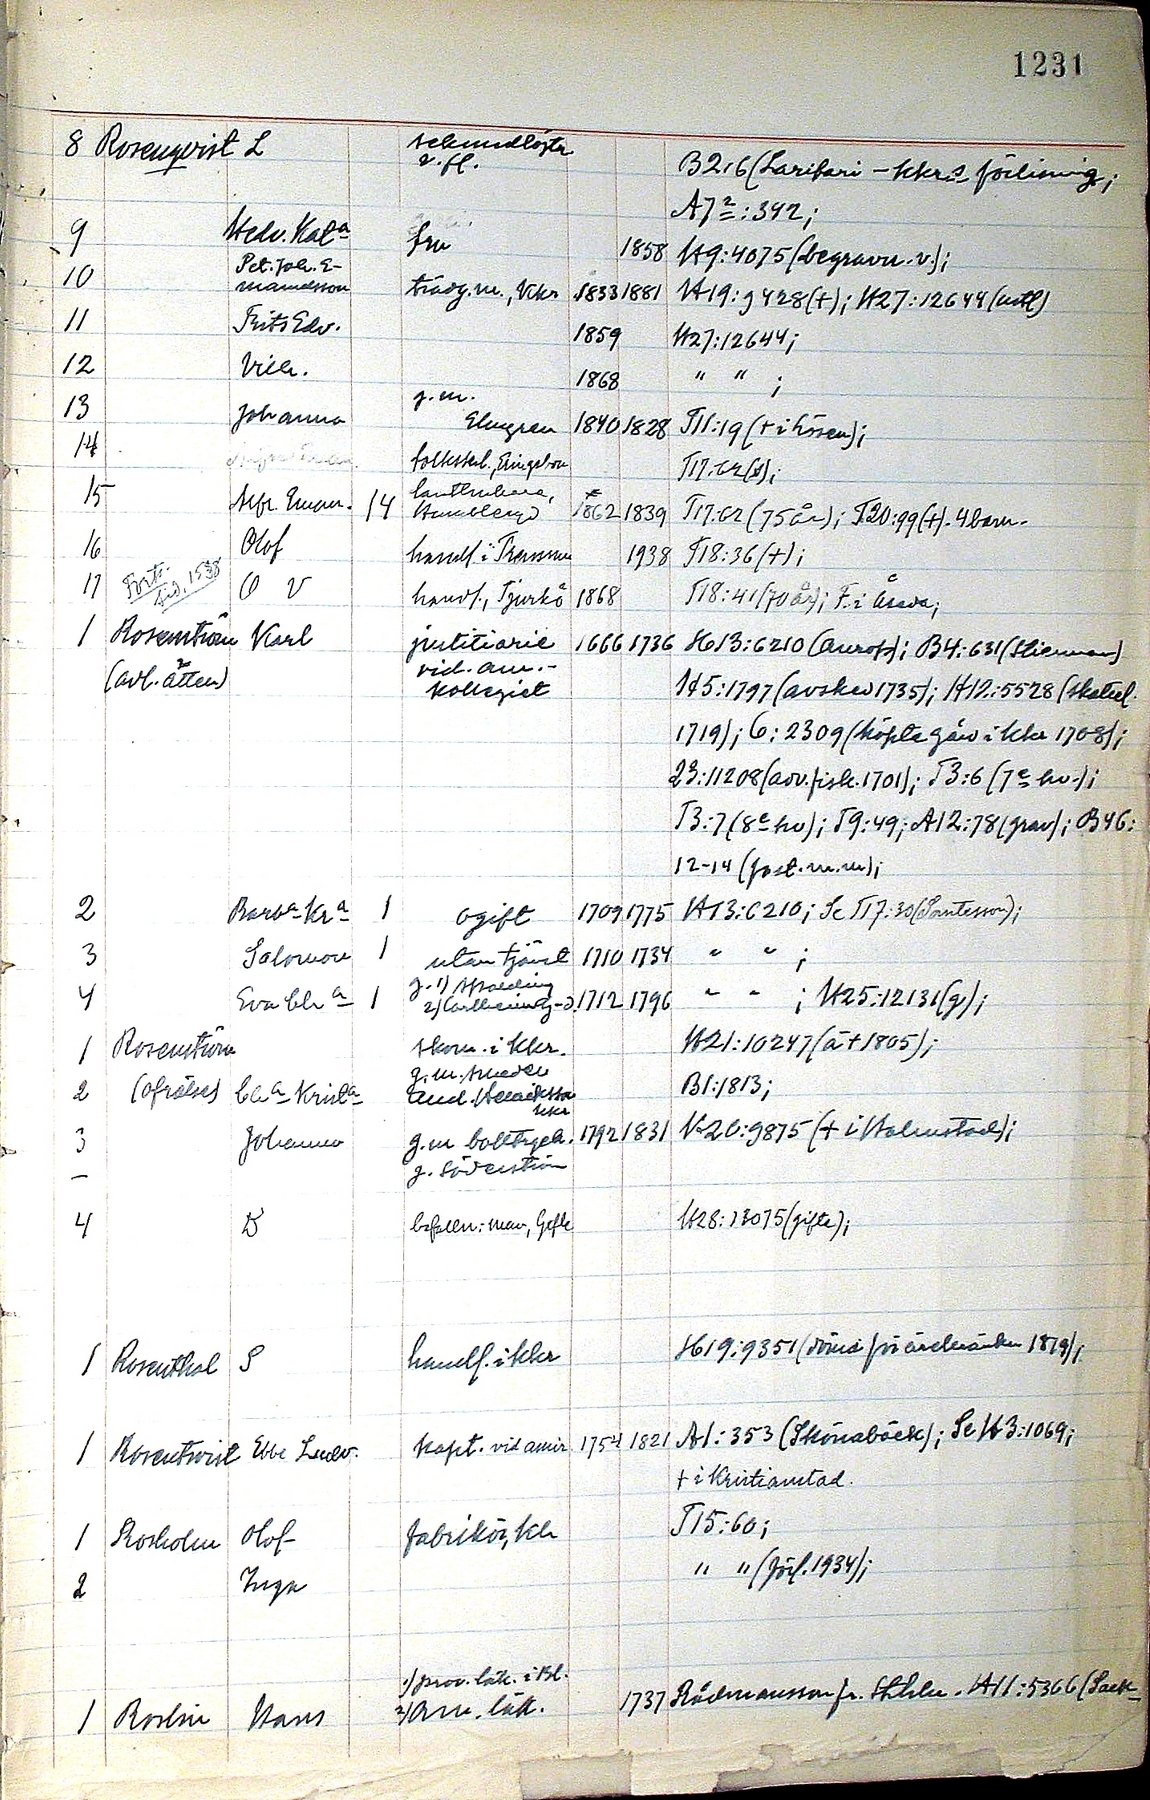 1231
8 Rosenqvist L
B216 (Larifari - kkrs förlisning;
A7²:342;
9 Hedv. Kata fru 1858 H9:4075 (begravn. v.);
10 Pet. Joh. E-
manuelsson trädg.m., Kkr 1833 1881 H19:9428 (+); H27:12644
11 Frits Edv. 1859 H27:12644;
12 Vilh. 1868 " " ;
13 Johanna g.m.
Elmgren 1840 1828 T11:19 (+ i Essen);
14 folkskl., Ringebon T17:62 (d);
15 Alfr. Eman. 14 1862 1839 T17:62 (75 år); T20:99 (+). 4 barn.
16 Olof handl. i 1938 T18:36 (+);
17 Forts.
sid. 1538 O V handl., Tjurkö 1868 T18:41 (70 år); F. i Åseda;
1 Rosenström Karl justitiarie 1666 1736 H13:6210 B4:631 (Stiernman)
(adl. ätten) vid. am.-
kollegiet H5:1797 (avsked 1735); H12:5528
1719); 6:2309 (köpte gård i kkr 1708);
23:11208 (adv. fisk. 1701); T3:6 (7e hv.);
T3:7 (8e hv); T9:49; A12:78 (grav); B46:
12-14 (fast. m.m);
2 Barba Kra 1 ogift 1709 1775 H13:6210; Se T17:30 (Santesson);
3 Salomon 1 utan tjänst 1710 1734 " " ;
4 Eva Chra 1 g. 1) Spalding
2) 1712 1796 " " ; H25:12131 (g);
1 Rosenström skom. i kkr. H21:10247 (ä + 1805);
2 (ofrälse) Cha Krista g.m. smeden
And. Henriksson
kkr B1:1813;
3 Johanna g.m 1792 1831 H20:9875 (+ i Halmstad);
g. Söderström
4 D Gefle H28:13075 (gifte);
1 Rosenthal S handl. i kkr H19:9351 1819);
1 Rosentwist Ebbe Ludv. kapt. vid amir. 1754 1821 A1:353 (Skönabäck); Se H3:1069;
+ i Kristianstad.
1 Rosholm Olof fabrikör, Kh T15:60;
2 Inga " " (förl. 1934);
1) prov. läk. i Bl.
1 Roslin Hans 2) am. läk. 1737 Rådmansson fr. Sthlm. H11:5366 (Sack-